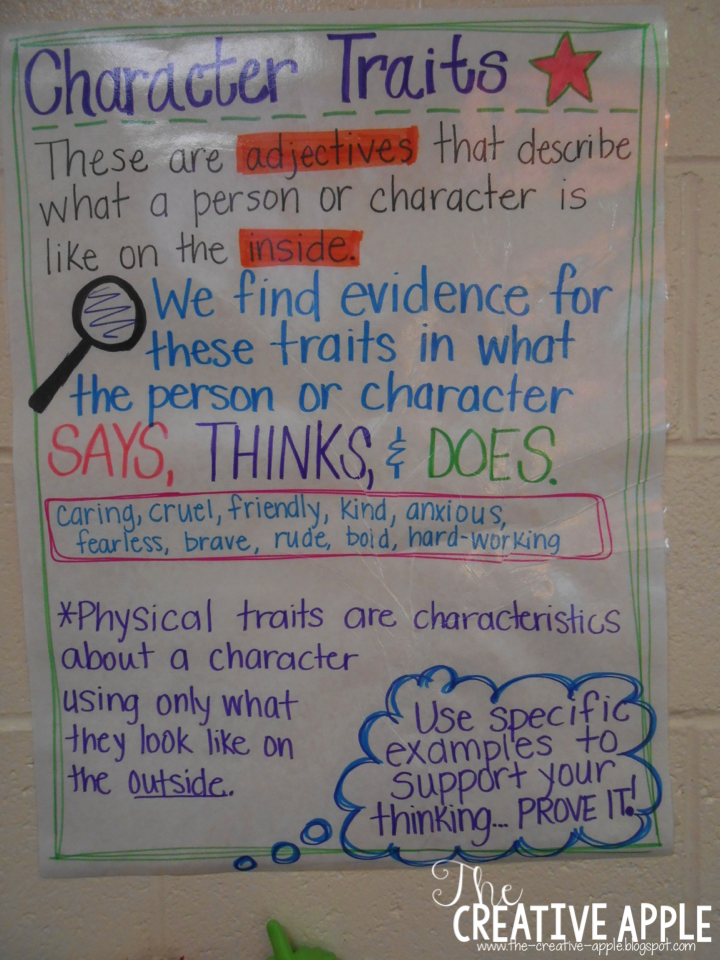 Character Traits
These are adjectives that describe
what a person or character is
like on the inside.
We find evidence for
these traits in what
the person or character
SAYS, THINKS, & DOES.
caring, cruel, friendly, kind, anxious,
fearless, brave, rude, bold, hard-working
*Physical traits are characteristics
about a character
using only what
they look like on
the outside.
Use specific
examples to
support your
thinking... PROVE IT!
The
CREATIVE APPLE
www.the-creative-apple.blogspot.com